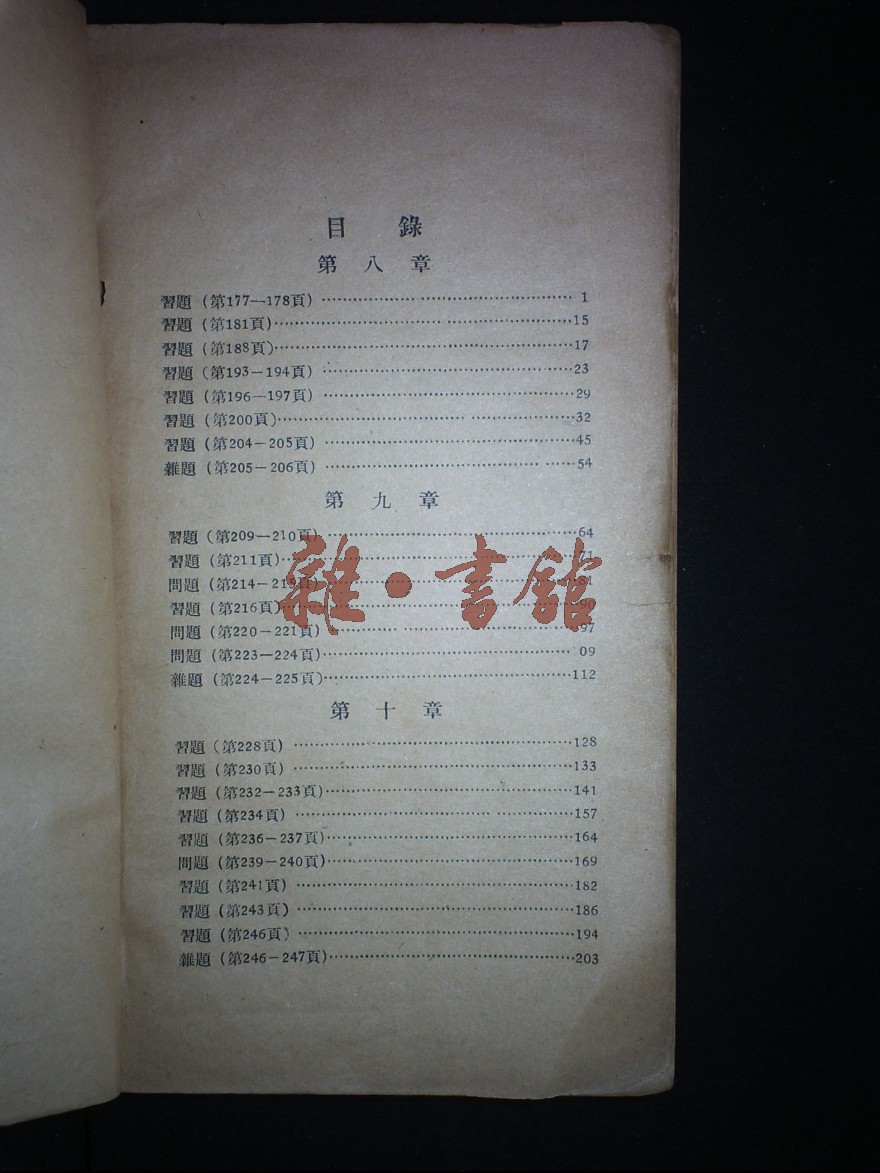 目錄
第八章
習題（第177—178頁）……………1
習題（第181頁）……………15
習題（第188頁）……………17
習題（第193—194頁）……………23
習題（第196—197頁）……………29
習題（第200頁）……………32
習題（第204—205頁）……………45
雜題（第205—206頁）……………54
第九章
習題（第209—210頁）……………64
習題（第211頁）……………71
問題（第214—215頁）……………81
習題（第216頁）……………90
問題（第220—221頁）……………97
問題（第223—224頁）……………09
雜題（第224—225頁）……………112
雜·書館
第十章
習題（第228頁）……………128
習題（第230頁）……………133
習題（第232—233頁）……………141
習題（第234頁）……………157
習題（第236—237頁）……………164
問題（第239—240頁）……………169
習題（第241頁）……………182
習題（第243頁）……………186
習題（第246頁）……………194
雜題（第246—247頁）……………203